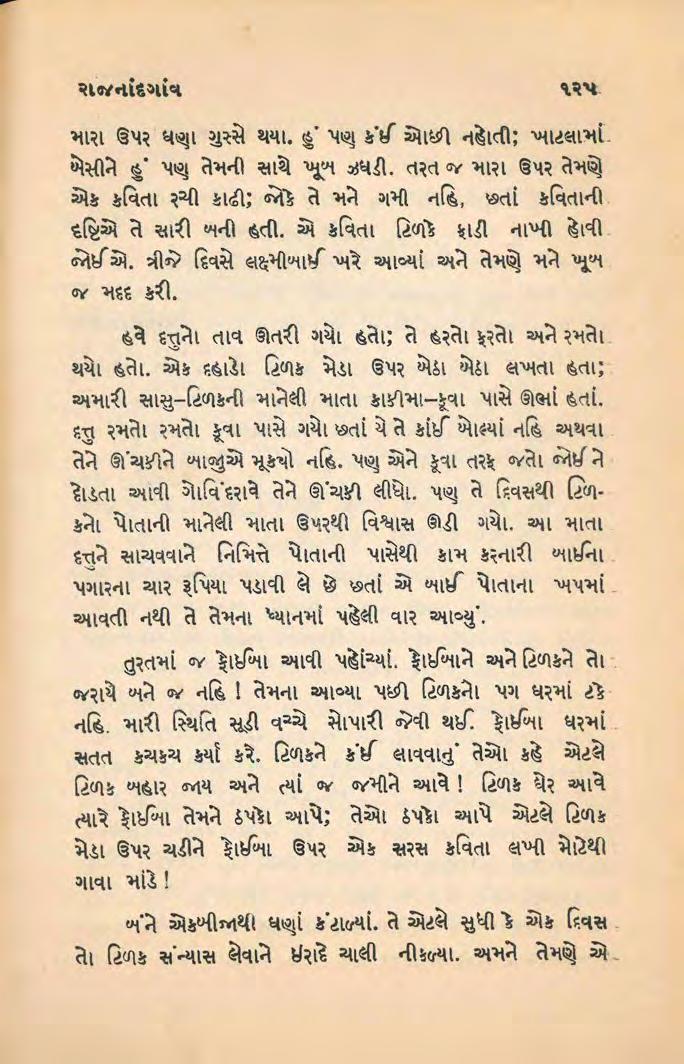 રાજનાંદગાંવ ૧૨૫
મારા ઉપર ઘણા ગુસ્સે થયા. હું પણ કંઈ ઓછી નહોતી; ખાટલામાં
બેસીને હું પણ તેમની સાથે ખૂબ ઝઘડી. તરત જ મારા ઉપર તેમણે
એક કવિતા રચી કાઢી; જોકે તે મને ગમી નહિ, છતાં કવિતાની
દૃષ્ટિએ તે સારી બની હતી. એ કવિતા ટિળકે ફાડી નાખી હોવી
જોઈએ. ત્રીજે દિવસે લક્ષ્મીબાઈ ખરે આવ્યાં અને તેમણે મને ખૂબ
જ મદદ કરી.
હવે દત્તુનો તાવ ઊતરી ગયો હતો; તે હરતો ફરતો અને રમતો
થયો હતો. એક દહાડો ટિળક મેડા ઉપર બેઠા બેઠા લખતા હતા;
અમારી સાસુ–ટિળકની માનેલી માતા કાકીમા–કૂવા પાસે ઊભાં હતાં.
દત્તુ રમતો રમતો કૂવા પાસે ગયો છતાં યે તે કાંઈ બોલ્યાં નહિ અથવા
તેને ઊંચકીને બાજુએ મૂક્યો નહિ. પણ એને કૂવા તરફ જતો જોઈ ને
દોડતા આવી ગોવિંદરાવે તેને ઊંચકી લીધો. પણ તે દિવસથી ટિળ-
કનો પોતાની માનેલી માતા ઉપરથી વિશ્વાસ ઊડી ગયો. આ માતા
દત્તુને સાચવવાને નિમિત્તે પોતાની પાસેથી કામ કરનારી બાઈના
પગારના ચાર રૂપિયા પડાવી લે છે છતાં એ બાઈ પોતાના ખપમાં
આવતી નથી તે તેમના ધ્યાનમાં પહેલી વાર આવ્યું.
તુરતમાં જ ફોઈબા આવી પહોંચ્યાં. ફોઈબાને અને ટિળકને તો
જરાયે બને જ નહિ ! તેમના આવ્યા પછી ટિળકનો પગ ઘરમાં ટકે
નહિ. મારી સ્થિતિ સૂડી વચ્ચે સોપારી જેવી થઈ. ફોઈબા ઘરમાં
સતત કચકચ કર્યા કરે. ટિળકને કંઈ લાવવાનું તેઓ કહે એટલે
ટિળક બહાર જાય અને ત્યાં જ જમીને આવે ! ટિળક ઘેર આવે
ત્યારે ફોઈબા તેમને ઠપકો આપે; તેઓ ઠપકો આપે એટલે ટિળક
મેડા ઉપર ચડીને ફોઈબા ઉપર એક સરસ કવિતા લખી મોટેથી
ગાવા માંડે !
બંને એકબીજાથી ઘણાં કંટાળ્યાં. તે એટલે સુધી કે એક દિવસ
તો ટિળક સંન્યાસ લેવાને ઈરાદે ચાલી નીકળ્યા. અમને તેમણે એ